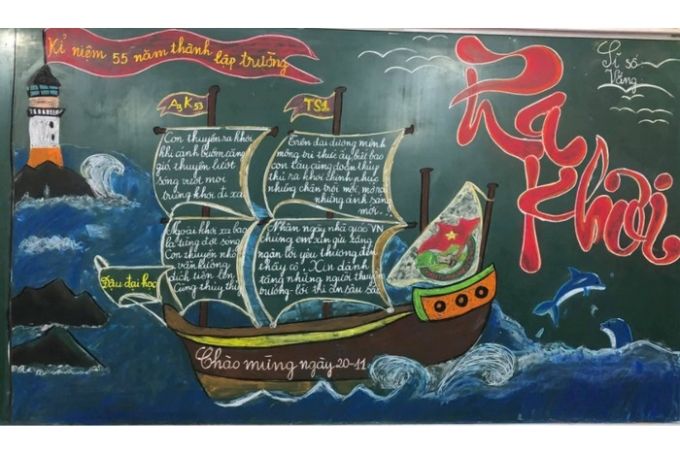 Kỉ niệm 55 năm thành lập trường
Sĩ số
Vắng
Ra
Khơi
A3 K53
TS1
Con thuyền ra khơi
khi cánh buồm căng
gió, thuyền lướt
sóng rười, mơi
trùng khơi đi xa
Trên đại dương mênh
mông tri thức ấy biết bao
con tàu cùng đoàn thủy
thủ ra khơi chinh phục
những chân trời mới, mở ra
những ánh sáng
mới...
Ngoài khơi xa bao
la từng đợt sóng
Con thuyền nhỏ
vẫn hướng
đích tiến lên
Cùng thủy thủ
Nhân ngày nhà giáo VN
chúng em xin gửi tặng
ngàn lời yêu thương đến
thầy cô. Xin dành
tặng những người thuyền
trưởng lời tri ân sâu sắc
Đậu đại học
Chào mừng ngày 20-11